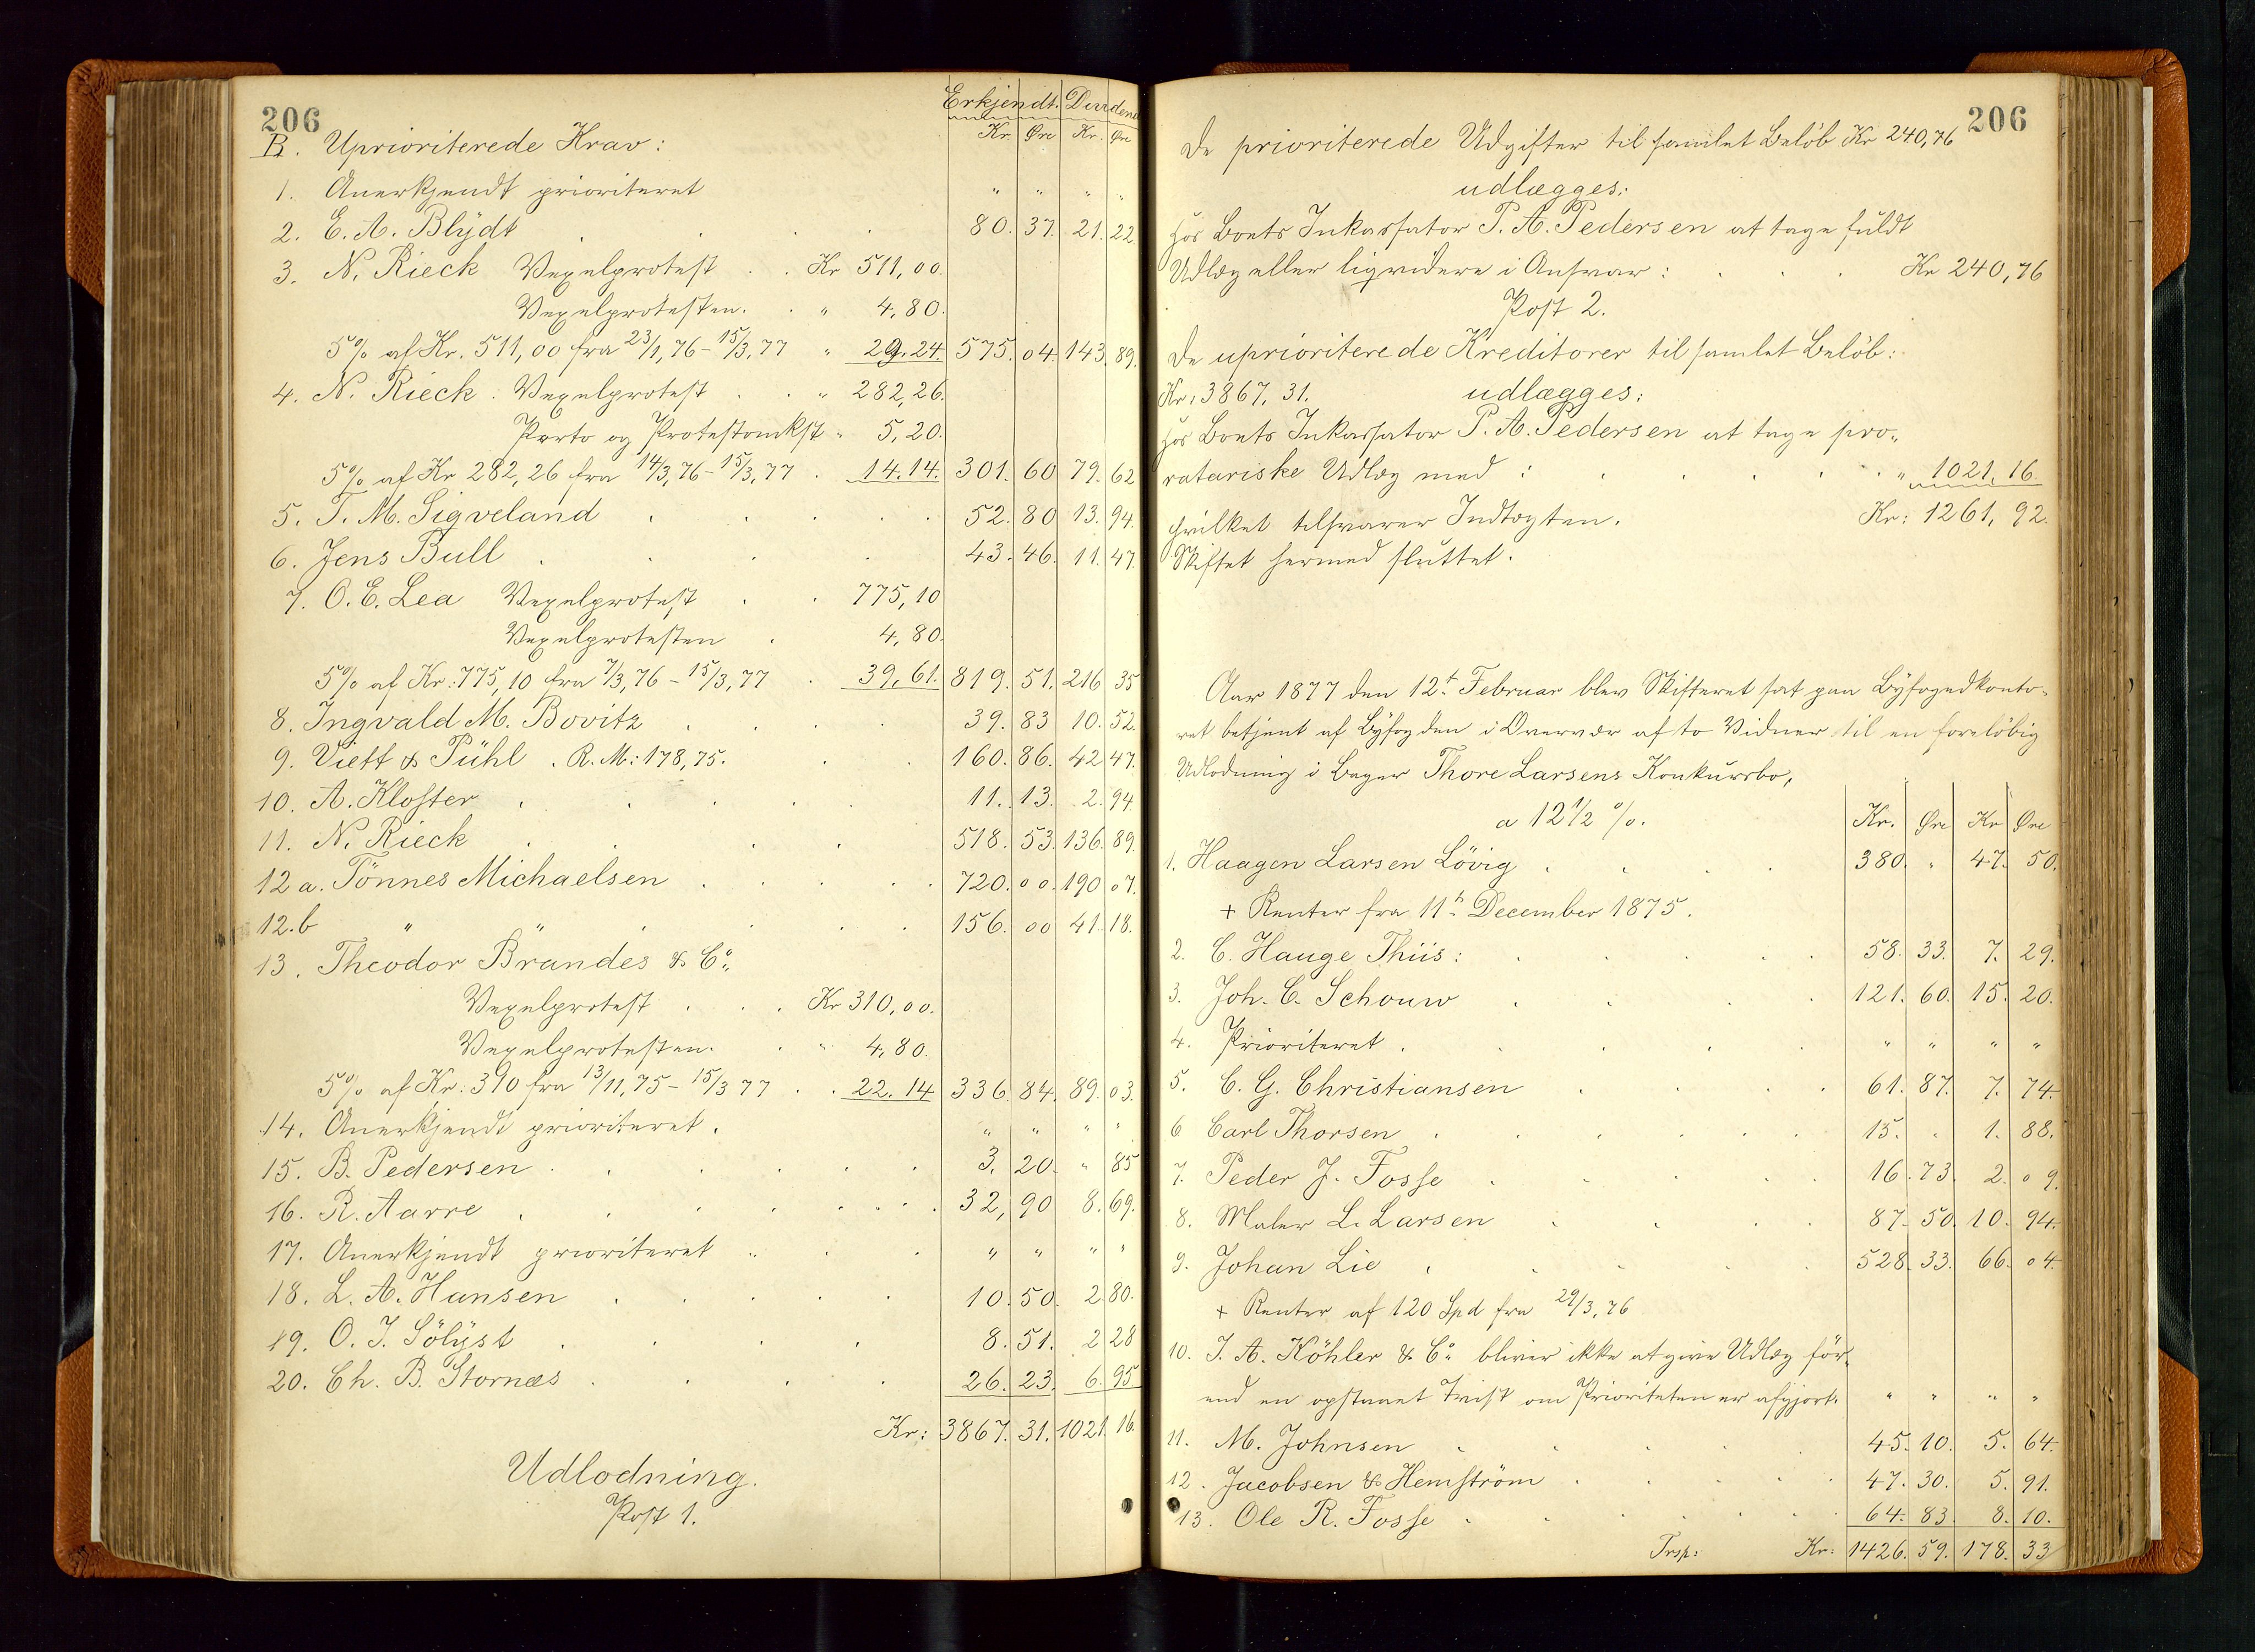 206
Erkjendt. Dividende
Kr. Øre Kr. Øre
B. Uprioriterede Krav:
1. Anerkjendt prioriteret " " " "
2. E. A. Blÿdt . . . . 80. 37. 21. 22
3. N. Rieck Vexelprotest . . Kr 511,00.
Vexelprotesten. . " 4,80.
5% af Kr. 511,00 fra 23/1,76 - 15/3,77 " 29.24. 575. 04. 143. 89.
4. N. Rieck. Vexelprotest . . " 282,26.
Porto og Protestomkst " 5,20.
5% af Kr 282,26 fra 14/3,76 - 15/3,77 . 14.14. 301. 60 79. 62
5. T. M. Sigveland . . . . 52. 80 13. 94.
6. Jens Bull . . . . 43. 46. 11. 47.
7. O. E. Lea Vexelprotest . . 775,10
Vexelprotesten . 4,80.
5% af Kr: 775,10 fra 7/3,76 - 15/3,77 . 39,61. 819. 51. 216 35
8. Ingvald M. Bovitz . . . . 39. 83 10. 52.
9. Viett & Pühl . R. M: 178,75. . . 160. 86. 42 47.
10. A. Kloster . . . . . 11. 13. 2. 94.
11. N. Rieck . . . . 518. 53. 136. 89.
12 a. Tönnes Michaelsen . . . . 720. 00. 190 07.
12. b " " . . . . 156. 00 41. 18.
13. Theodor Brandes & Co.
Vexelprotest . . . Kr 310,00.
Vexelprotesten. . " 4,80.
5% af Kr: 310 fra 13/11,75 - 15/3 77 . . 22.14 336. 84. 89. 03.
14. Anerkjendt prioriteret. " " " "
15. B. Pedersen . . . . . 3. 20. " 85
16. R. Aarre . . . . . 32, 90 8. 69.
17. Anerkjendt prioriteret . . . " " " "
18. L. A. Hansen . . . . . 10. 50. 2. 80.
19. O. J. Sölÿst . . . . 8. 51. 2 28
20. Ch. B. Stornæs . . . . 26. 23. 6. 95
Kr: 3867. 31. 1021. 16.
Udlodning.
Post 1.
206
De prioriterede Udgifter til samlet Belöb Kr 240,76
udlægges:
hos Boets Inkassator P. A. Pedersen at tage fuldt
Udlæg eller liqvidere i Ansvar: . . . Kr 240,76
Post 2.
De uprioriterede Kreditorer til samlet Belöb:
Kr: 3867, 31. udlægges:
hos Boets Inkassator P. A. Pedersen at tage pro-
ratariske Udlæg med : . . . . " 1021,16.
hvilket tilsvarer Indtægten. Kr: 1261, 92.
Skiftet hermed sluttet.
Aar 1877 den 12t Februar blev Skifteret sat paa Bÿfogedkonto-
ret betjent af Bÿfogden i Overvær af to Vidner til en forelöbig
Udlodning i Bager Thore Larsens Konkursbo,
a 12 1/2 %. Kr. Øre Kr Øre
1. Haagen Larsen Lövig . . . 380. " 47. 50.
+ Renter fra 11t December 1875.
2. C. Hauge Thiis: . . . . 58. 33. 7. 29.
3. Joh. C. Schouw . . . . 121. 60. 15. 20.
4. Prioriteret . . . . . " " " "
5. C. G. Christiansen . . . . 61. 87. 7. 74.
6 Carl Thorsen . . . . . 15. " 1. 88.
7. Peder J. Fosse . . . . 16. 73. 2. 09.
8. Maler L. Larsen . . . . 87. 50. 10. 94.
9. Johan Lie . . . . 528. 33. 66. 04.
+ Renter af 120 Spd fra 29/3,76
10. J. A. Köhler & Co. bliver ikke at give Udlæg för-
end en opstaaet Tvist om Prioriteten er afgjort. " " " "
11. M. Johnsen . . . . 45. 10. 5. 64.
12. Jacobsen & Hemström . . . . 47. 30. 5. 91.
13. Ole R. Fosse . . . . . 64. 83. 8. 10.
Trsp: Kr: 1426. 59. 178. 33